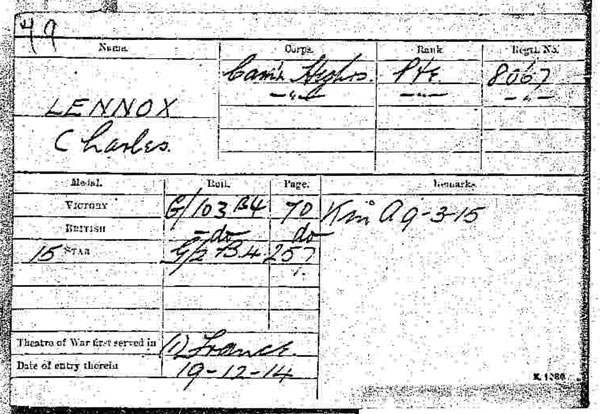 49
Name. Corps. Rank. Regtl. No.
Cam'n Hghrs. Pte 8067
—"— —"— —"—
LENNOX
Charles.
Medal. Roll. Page. Remarks.
VICTORY G/103 B4 70 K in A 9-3-15
BRITISH -do- do
15 STAR G/2 B4 257
Theatre of War first served in (1) France.
Date of entry therein 19-12-14
K. 1380